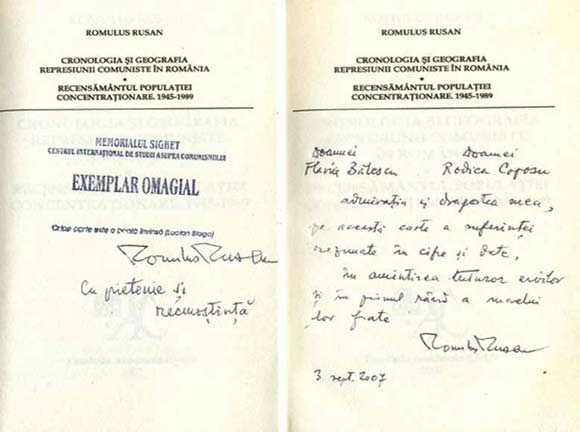 ROMULUS RUSAN
CRONOLOGIA ŞI GEOGRAFIA
REPRESIUNII COMUNISTE ÎN ROMÂNIA
•
RECENSĂMÂNTUL POPULAŢIEI
CONCENTRAŢIONARE. 1945-1989
MEMORIALUL SIGHET
CENTRUL INTERNAŢIONAL DE STUDII ASUPRA COMUNISMULUI
EXEMPLAR OMAGIAL
Orice carte este o boală învinsă (Lucian Blaga)
Romulus Rusan
Cu prietenie şi
recunoştinţă
ROMULUS RUSAN
CRONOLOGIA ŞI GEOGRAFIA
REPRESIUNII COMUNISTE ÎN ROMÂNIA
•
RECENSĂMÂNTUL POPULAŢIEI
CONCENTRAŢIONARE. 1945-1989
Doamnei Doamnei
Flavia Bălescu Rodica Coposu
admiraţia şi dragostea mea,
pe această carte a suferinţei
rezumate în cifre şi date,
în amintirea tuturor eroilor
şi în primul rând a marelui
lor frate
Romulus Rusan
3 sept. 2007